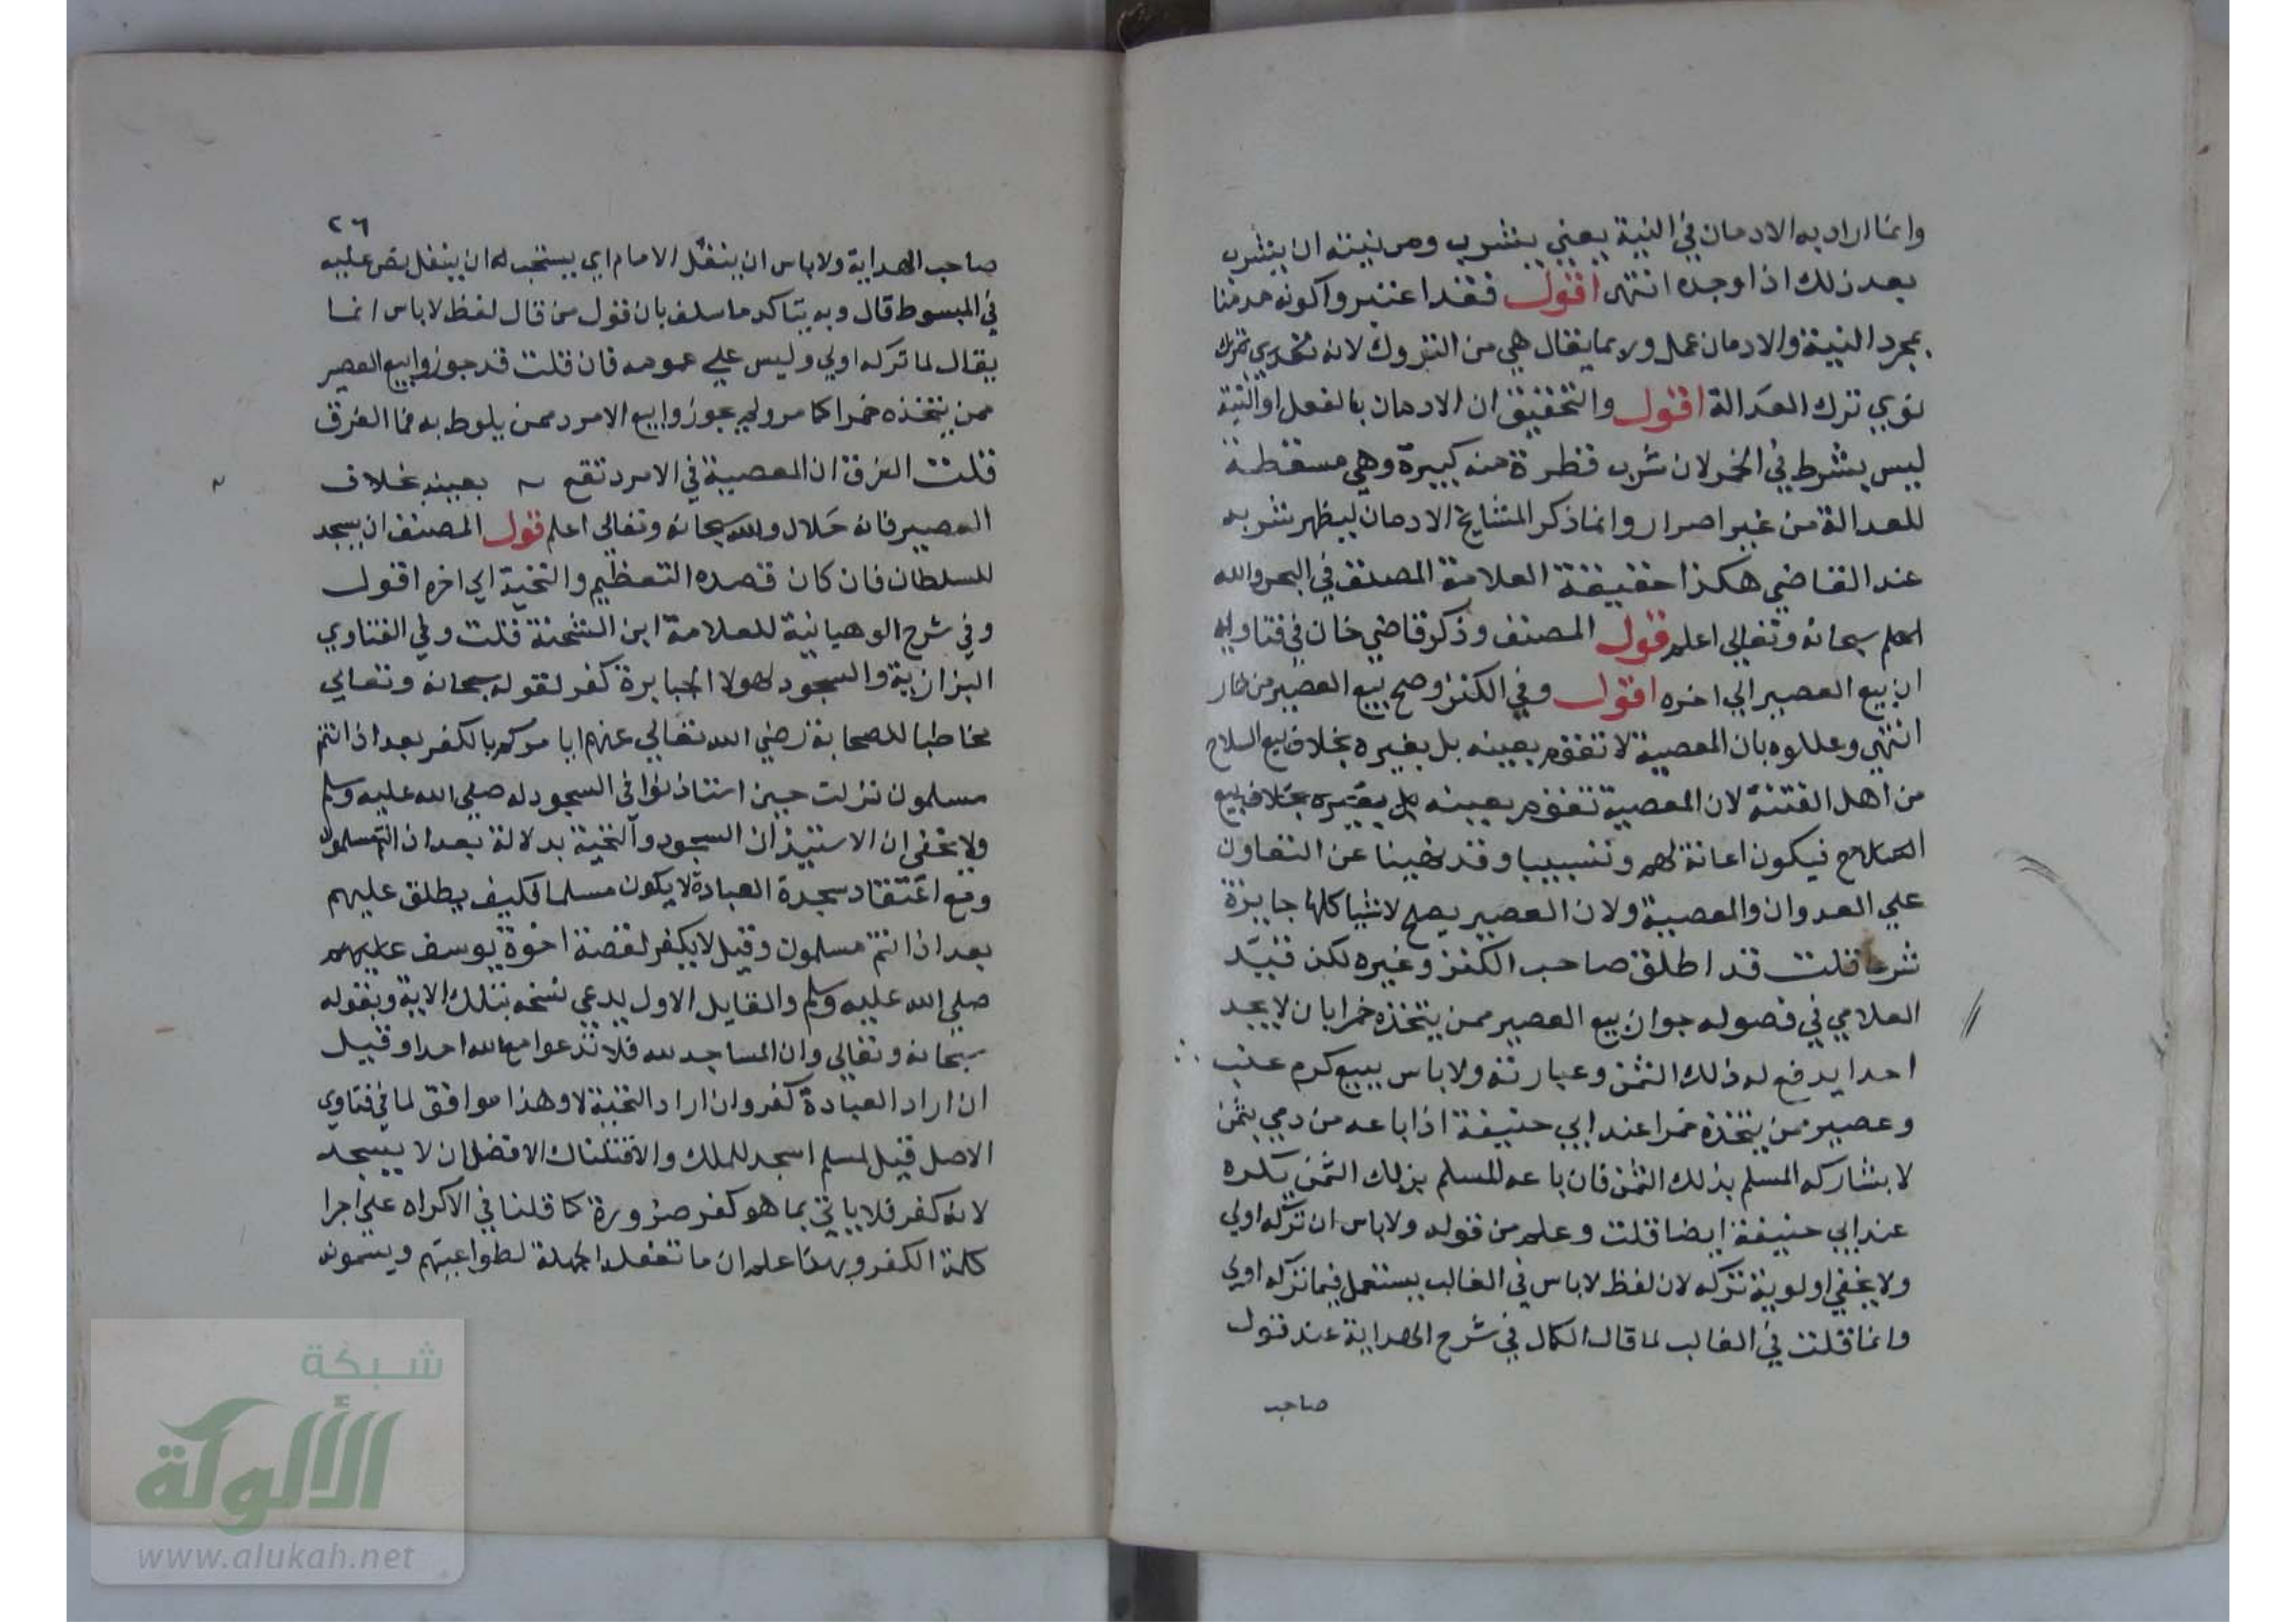 وانما اراد به الادمان في النية يعني يشرب ومن نيته ان يشرب
بعد ذلك اذا وجده انتهى اقول فقد اعتبروا كونه مدمنا
بمجرد النية والادمان عمل ولا يقال هي من التروك لانه
نوي ترك العدالة اقول والتحقيق ان الادمان بالفعل او النية
ليس بشرط في الخمر لان شرب قطرة منه كبيرة وهي مسقطة
للعدالة من غير اصرار وانما ذكر المشايخ الادمان ليظهر شربه
عند القاضي هكذا حقيقة العلامة المصنف في البحر والله
اعلم سبحانه وتعالى اعلم قول المصنف وذكر قاضي خان في فتاويه
ان بيع العصير الي اخره اقول وفي الكنز وصح بيع العصير من خمار
انتهى وعللوه بان المعصية لا تقوم بعينه بل بغيره بخلاف بيع السلاح
من اهل الفتنة لان المعصية تقوم بعينه بل بغيره بخلاف بيع
السلاح فيكون اعانة لهم وتسبيبا وقد نهينا عن التعاون
علي العدوان والمعصية ولان العصير يصلح لاشيا كلها جايزة
شرعا قلت قد اطلق صاحب الكنز وغيره لكن قيد
العلامي في فصوله جواز بيع العصير ممن يتخذه خمرا بان لا يجد
احدا يدفع له ذلك الثمن وعبارته ولا باس ببيع كرم عنب
وعصير ممن يتخذه خمرا عند ابي حنيفة اذا باعه من دمي بثمن
لا يشاركه المسلم بذلك الثمن فان باعه للمسلم بذلك الثمن يكره
عند ابي حنيفة ايضا قلت وعلم من قوله ولا باس ان تركه اولي
ولا يخفي اولوية تركه لان لفظ لا باس في الغالب يستعمل فيما تركه اولي
وانما قلت في الغالب لما قال الكمال في شرح الهداية عند قول
صاحب
٢٦
صاحب الهداية ولا باس ان ينفل الامام اي يستحب له ان ينفل نص عليه
في المبسوط قال وبه يتاكد ما سلف بان قول من قال لفظ لا باس انما
يقال لما تركه اولي وليس علي عمومه فان قلت قد جوزوا بيع العصير
ممن يتخذه خمرا كما مر ولم يجوزوا بيع الامرد ممن يلوط به فما الفرق
قلت الفرق ان المعصية في الامرد تقع بعينه بخلاف
العصير فانه حلال والله سبحانه وتعالى اعلم قول المصنف ان يسجد
للسلطان فان كان قصده التعظيم والتحية الي اخره اقول
وفي شرح الوهبانية للعلامة ابن الشحنة قلت وفي الفتاوي
البزازية والسجود لهولا الجبابرة كفر لقوله سبحانه وتعالى
مخاطبا للصحابة رضي الله تعالى عنهم ايامركم بالكفر بعد اذ انتم
مسلمون نزلت حين استاذنوا في السجود له صلى الله عليه وسلم
ولا يخفى ان الاستيذان السجود والتحية بدلالة بعد اذ انتم مسلمون
ومع اعتقاد سجدة العبادة لا يكون مسلما فكيف يطلق عليهم
بعد اذ انتم مسلمون وقيل لا يكفر لقصة اخوة يوسف عليهم
صلى الله عليه وسلم والقايل الاول يدعي نسخه بتلك الاية وبقوله
سبحانه وتعالى وان المساجد لله فلا تدعوا مع الله احدا وقيل
ان اراد العبادة كفر وان اراد التحية لا وهذا موافق لما في فتاوي
الاصل قيل لمسلم اسجد للملك والا قتلناك الافضل ان لا يسجد
لانه كفر فلا ياتي بما هو كفر صورة كما قلنا في الاكراه علي اجرا
كلمة الكفر وبهذا علم ان ما تفعله الجهلة لطواغيتهم ويسمونه
شبكة
الألوكة
www.alukah.net